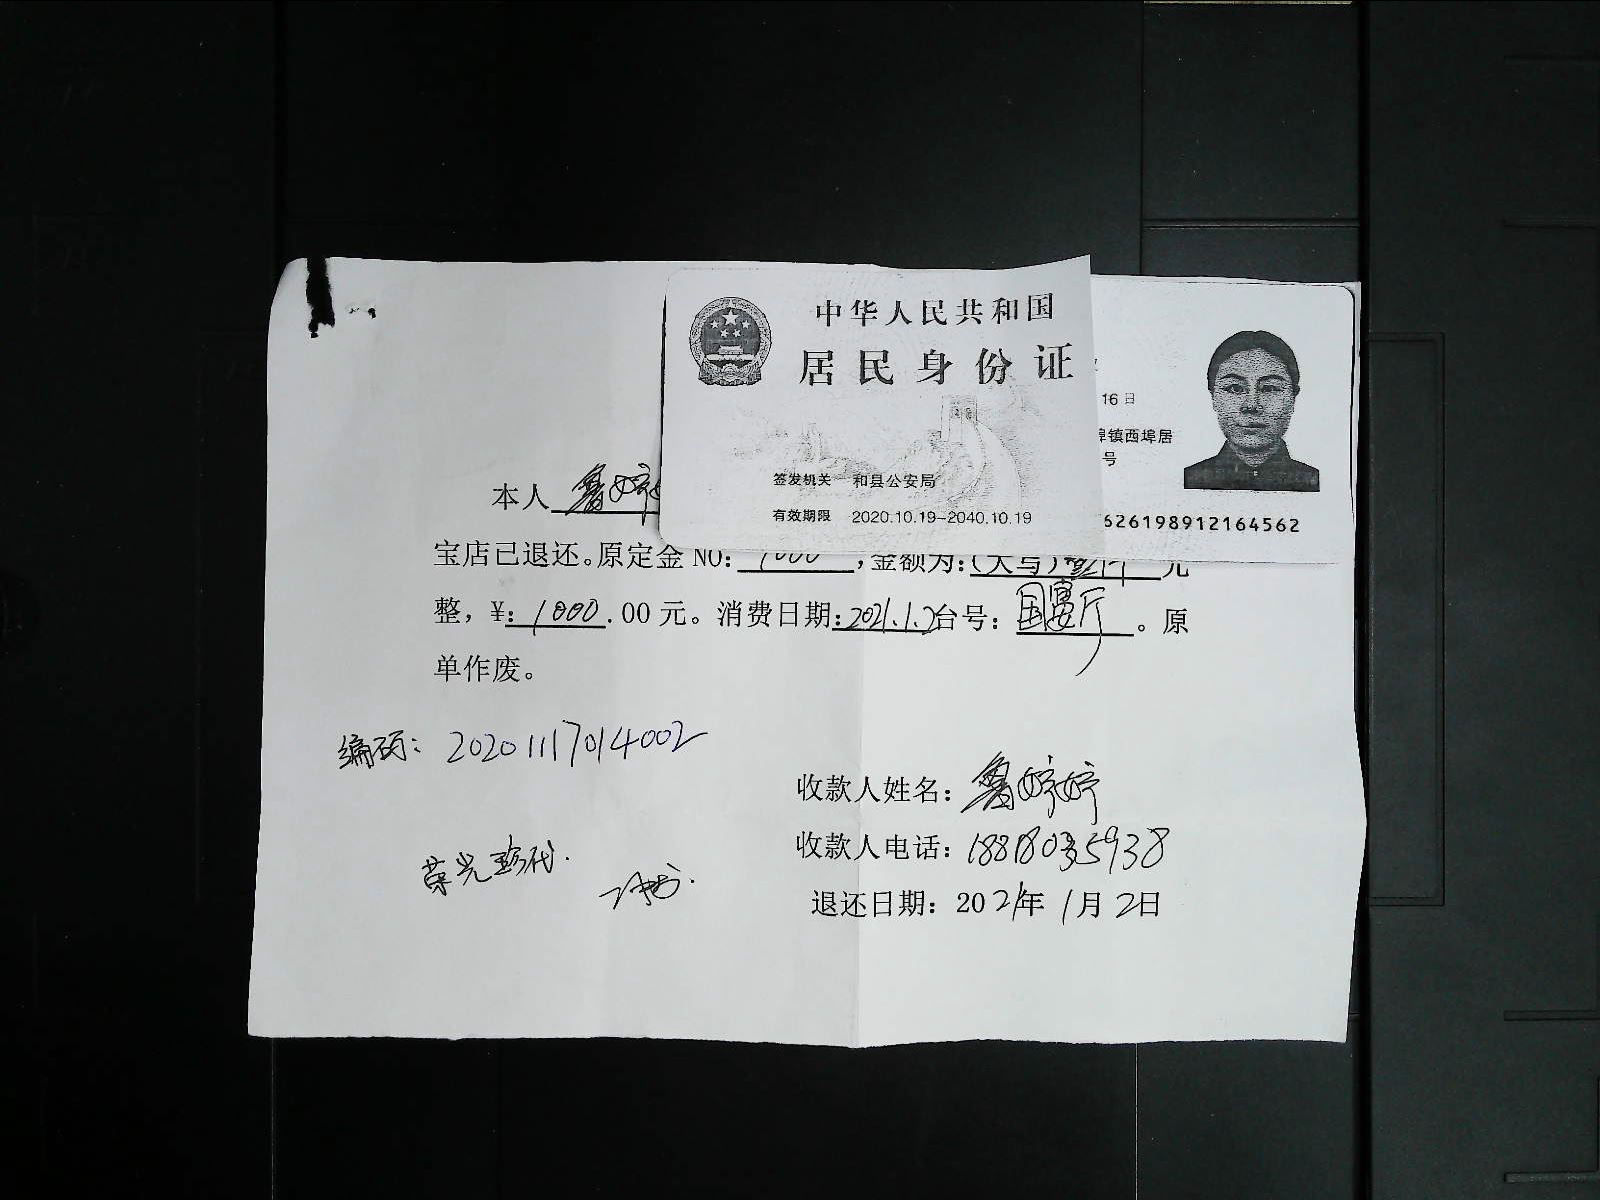 中华人民共和国
居民身份证
16日
埠镇西埠居
号
签发机关 和县公安局
有效期限 2020.10.19-2040.10.19
626198912164562
本人 鲁婷
宝店已退还。原定金NO: 1000 ,金额为:(大写)壹仟 元
整，¥: 1000.00元。消费日期: 2021.1.2 台号: 国宴厅 。原
单作废。
编码: 20201117014002
收款人姓名: 鲁婷婷
收款人电话: 18818035938
荣光
退还日期: 2021年1月2日